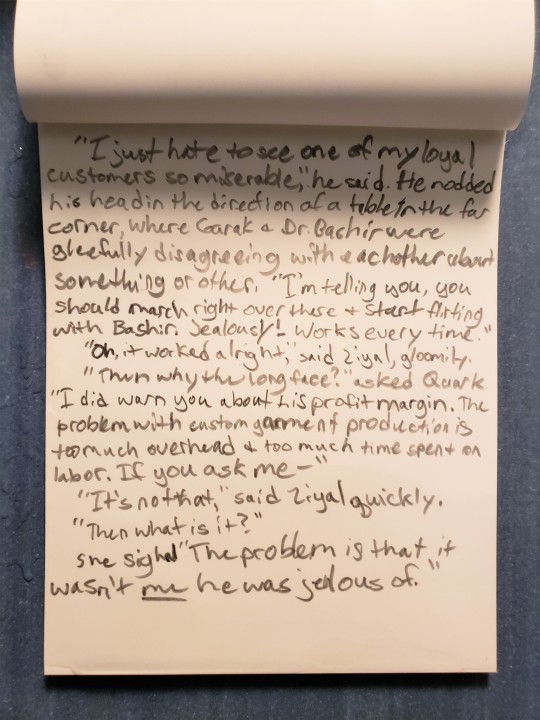 "I just hate to see one of my loyal
customers so miserable," he said. He nodded
his head in the direction of a table in the far
corner, where Garak & Dr. Bashir were
gleefully disagreeing with eachother about
something or other. "I'm telling you, you
should march right over there & start flirting
with Bashir. Jealously! Works every time."
"Oh, it worked alright," said Ziyal, gloomily.
"Then why the long face?" asked Quark
"I did warn you about his profit margin. The
problem with custom garment production is
too much overhead & too much time spent on
labor. If you ask me—"
"It's not that," said Ziyal quickly.
"Then what is it?"
She sighed "The problem is that it
wasn't me he was jealous of."